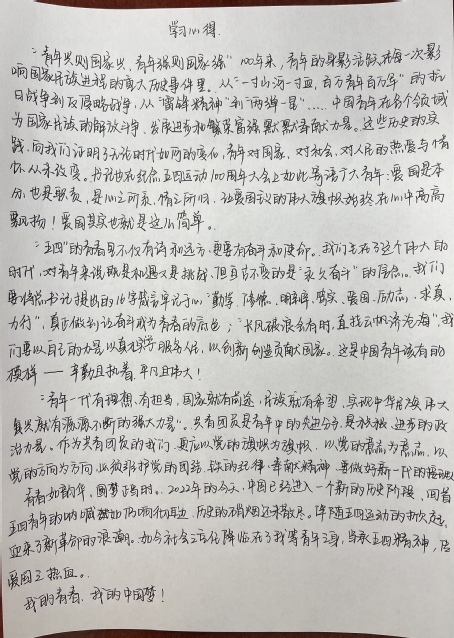 学习心得
“青年兴则国家兴，青年强则国家强”100年来，青年的身影活跃在每一次影
响国家民族进程的重大历史事件里。从“一寸山河一寸血，百万青年百万军”的抗
日战争到反侵略战争，从“雷锋精神”到“两弹一星”……中国青年在各个领域
为国家民族的解放斗争、发展进步和繁荣富强默默奉献力量。这些历史的实
践，向我们证明了无论时代如何的变化，青年对国家，对社会，对人民的热爱与情
怀从未改变。书记也在纪念五四运动100周年大会上如此寄语广大青年：爱国是本
分，也是职责，是心之所系，情之所归，让爱国主义的伟大旗帜始终在心中高高
飘扬！爱国其实也就是这么简单。
“五四”的青春里不仅有诗和远方，更要有奋斗和使命。我们生在了这个伟大的
时代，对青年来说既是机遇又是挑战，但亘古不变的是“永久奋斗”的信念。我们
要将总书记提出的16字箴言牢记于心“勤学、修德、明辨、笃实、爱国、励志、求真、
力行”，真正做到让奋斗成为青春的底色；“长风破浪会有时，直挂云帆济沧海”，我
们要以自己的力量以真才实学服务人民，以创新创造贡献国家。这是中国青年该有的
模样——辛勤且执着，平凡且伟大！
“青年一代有理想，有担当，国家就有前途，民族就有希望，实现中华民族伟大
复兴就有源源不断的强大力量”。共青团员是青年中的先进分子，是积极、进步的政
治力量。作为共青团员的我们，更应以党的旗帜为旗帜，以党的意志为意志，以
党的方向为方向，必须维护党的团结，你的纪律，奉献精神，要做好新一代的接班人
青春如韵华，圆梦正当时。2022年的今天，中国已经进入一个新的历史阶段，回首
五四青年的呐喊声如仍响彻耳边，历史的硝烟还未散尽。伴随五四运动的挫折之后，
迎来了新革命的浪潮。如今社会之责任降临在了我等青年之身，当承五四精神，传
爱国之热血。
我的青春，我的中国梦！